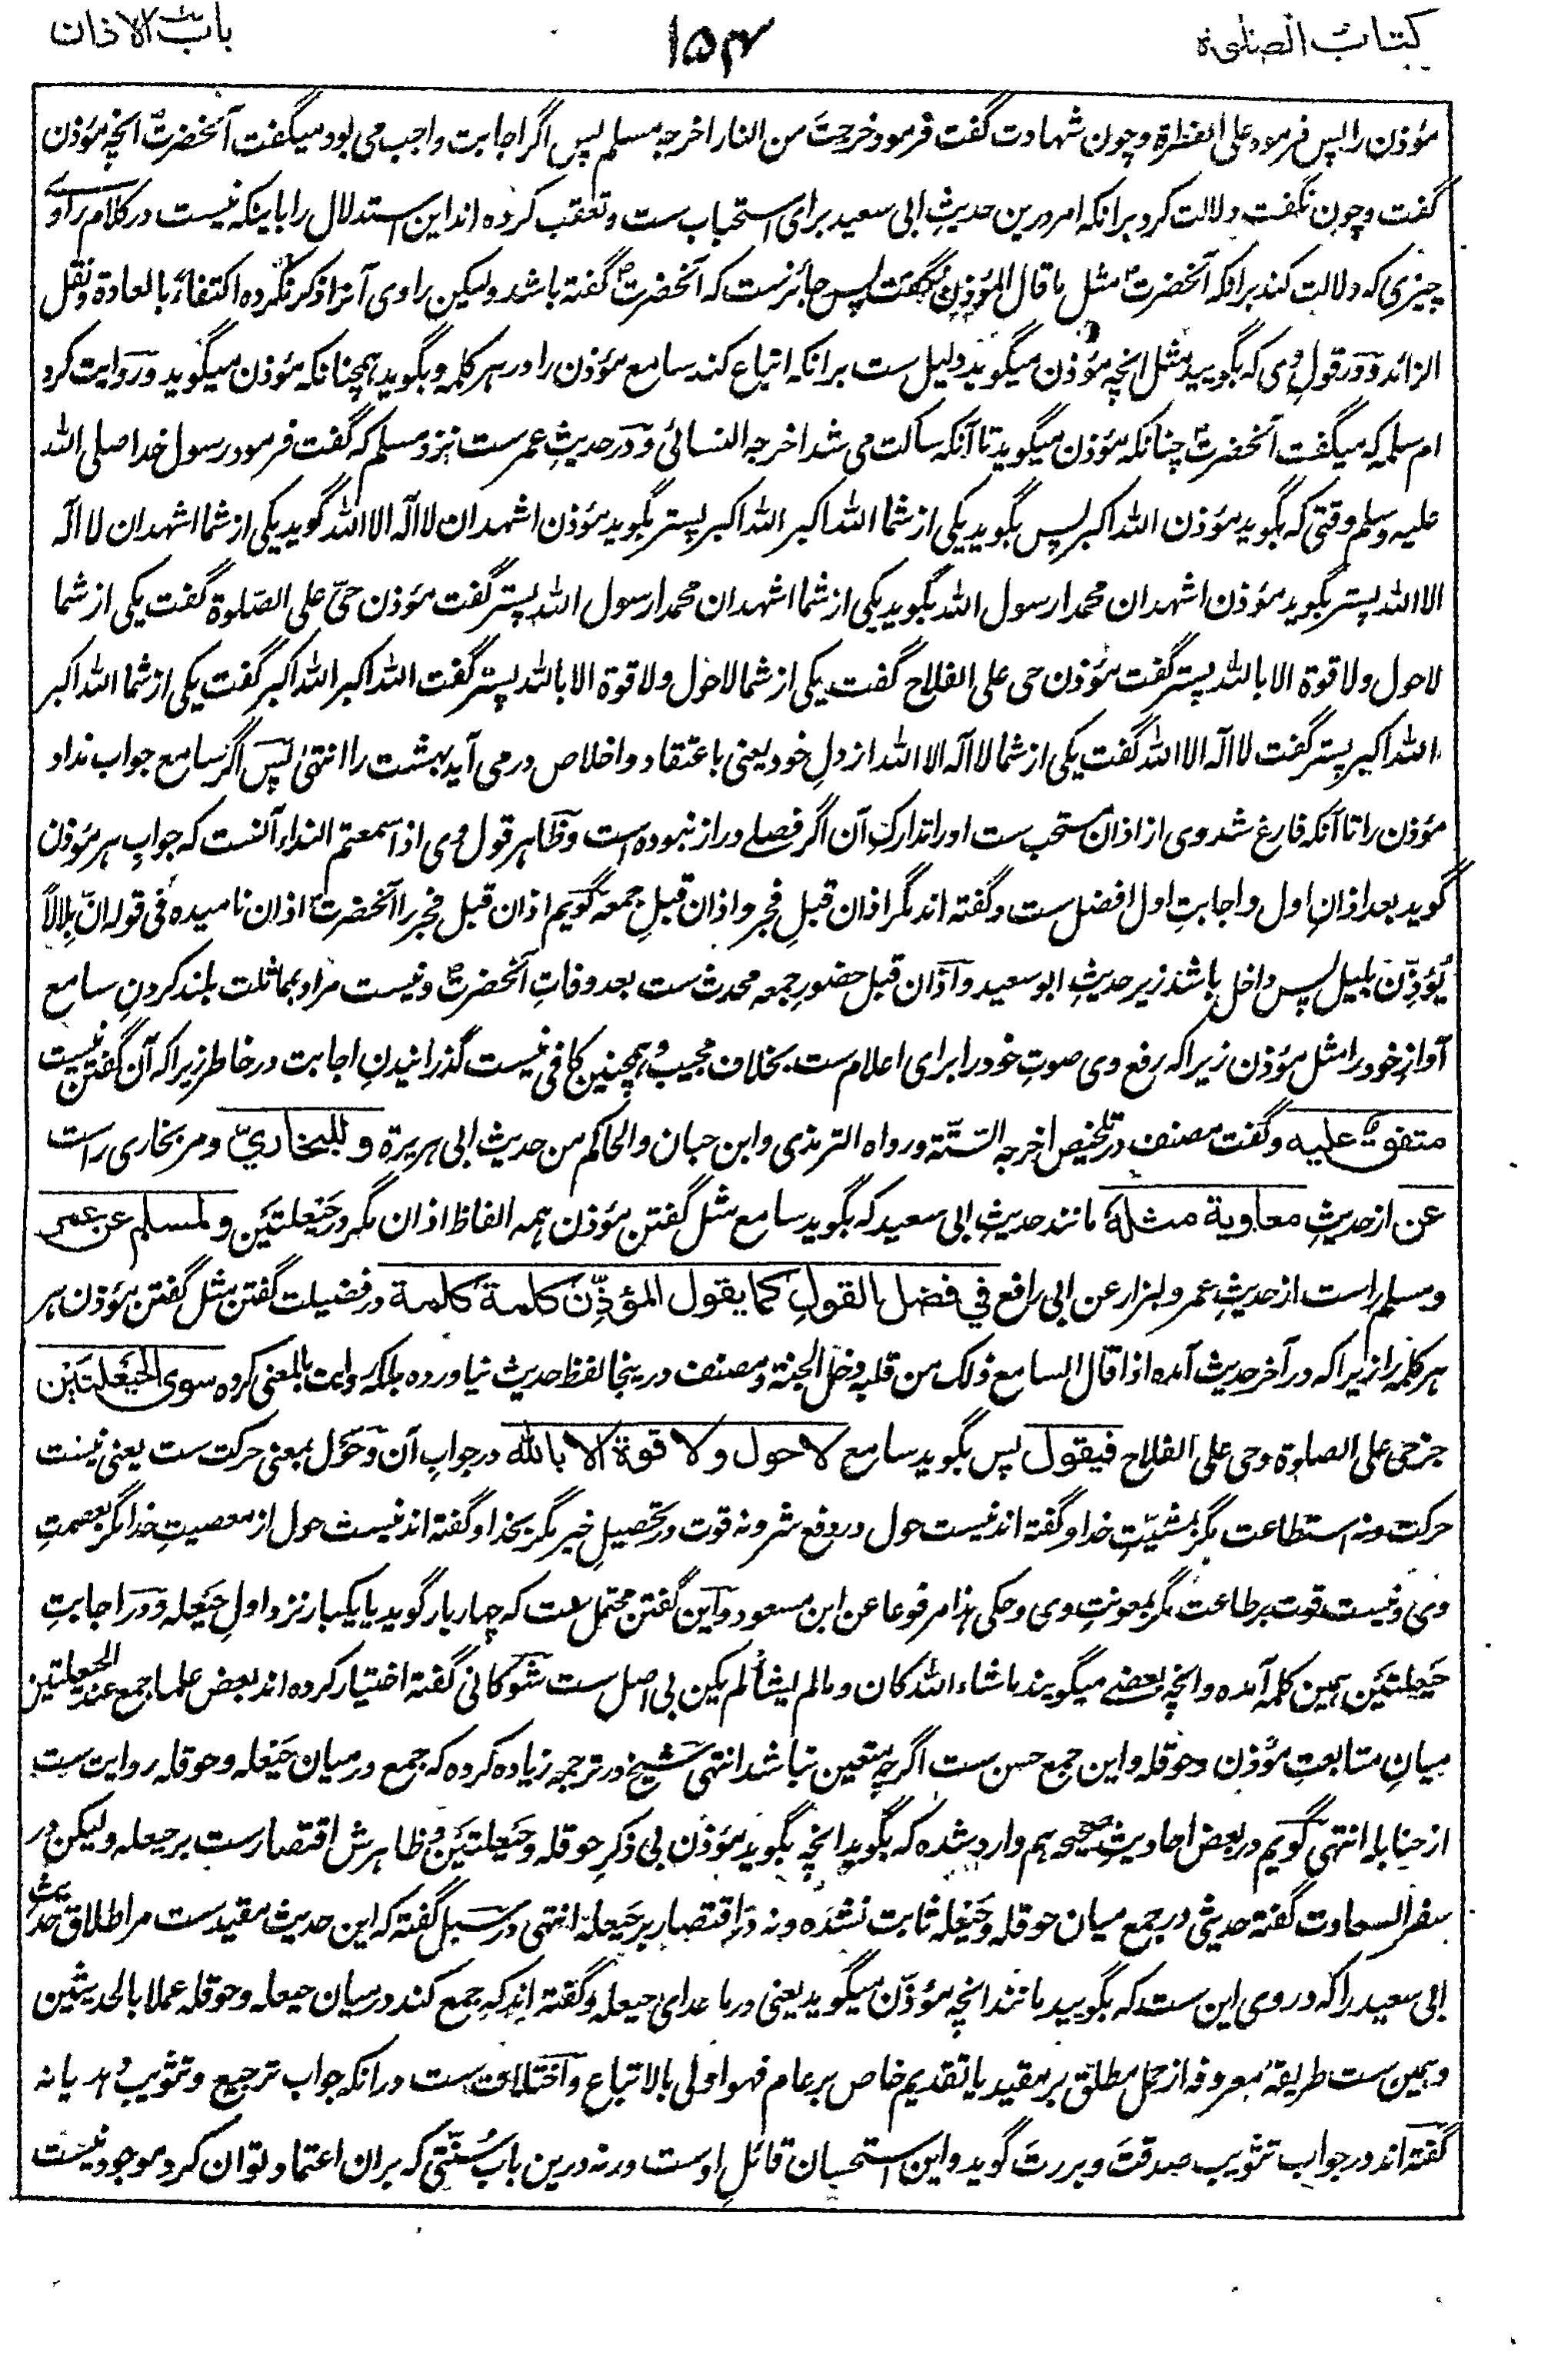 کتاب الصلوة
۱۵۴
باب الاذان
مؤذن را پس فرمود علی الفطرة و چون شهادت گفت فرمود خرجتَ من النار اخرجه مسلم پس اگر اجابت واجب می بود میگفت آنحضرتؐ انچه مؤذن
گفت و چون نگفت دلالت کرد برانکه امر درین حدیثِ ابی سعید برای استحباب ست و تعقب کرده اند این استدلال را باینکه نیست در کلام راوے
چیزی که دلالت کند برانکه آنحضرتؐ مثل ما قال المؤذن نگفت پس جائزست که آنحضرتؐ گفته باشد ولیکن راوی آنرا ذکر نکرده اکتفاءً بالعادة و نقل
الزائد و در قولِ وی که بگویید مثل انچه مؤذن میگوید دلیل ست برانکه اتباع کند سامع مؤذن را در هر کلمه و بگوید همچنانکه مؤذن میگوید و روایت کرد
ام سلمه که میگفت آنحضرتؐ چنانکه مؤذن میگوید تا آنکه ساکت می شد اخرجه النسائی و در حدیثِ عمرست نزد مسلم که گفت فرمود رسول خدا صلی الله
علیه وسلم وقتی که بگوید مؤذن الله اکبر پس بگوید یکی از شما الله اکبر الله اکبر پستر بگوید مؤذن اشهد ان لا اله الا الله گوید یکی از شما اشهد ان لا اله
الا الله پستر بگوید مؤذن اشهد ان محمدا رسول الله بگوید یکی از شما اشهد ان محمدا رسول الله پستر گفت مؤذن حیّ علی الصّلوة گفت یکی از شما
لا حول ولا قوة الا بالله پستر گفت مؤذن حی علی الفلاح گفت یکی از شما لا حول ولا قوة الا بالله پستر گفت الله اکبر الله اکبر گفت یکی از شما الله اکبر
الله اکبر پستر گفت لا اله الا الله گفت یکی از شما لا اله الا الله از دلِ خود یعنی باعتقاد و اخلاص در می آید بهشت را انتهی پس اگر سامع جواب نداد
مؤذن را تا آنکه فارغ شد وی از اذان مستحب ست او را تدارکِ آن اگر فصلے دراز نبوده است و ظاهر قول وی اذا سمعتم النداء آنست که جوابِ هر مؤذن
گوید بعد اذانِ اول و اجابتِ اول افضل ست و گفته اند مگر اذان قبلِ فجر و اذان قبلِ جمعه گویم اذان قبل فجر را آنحضرتؐ اذان نامیده فی قوله انّ بِلالاً
یُؤذِّن بلیل پس داخل باشد زیر حدیثِ ابو سعید و اذان قبل حضورِ جمعه محدث ست بعد وفاتِ آنحضرتؐ و نیست مراد بمماثلت بلند کردنِ سامع
آوازِ خود را مثل مؤذن زیرا که رفع وی صوتِ خود را برای اعلام ست بخلاف مجیب و همچنین کافی نیست گذرانیدنِ اجابت در خاطر زیرا که آن گفتن نیست
متفق علیه و گفت مصنف در تلخیص اخرجه السّتّة و رواه الترمذی و ابن حبان و الحاکم من حدیث ابی هریرة و للبخاریّ و مر بخاری راست
عن از حدیثِ معاویة مثله مانند حدیثِ ابی سعید که بگوید سامع مثل گفتنِ مؤذن همه الفاظ اذان مگر در حَیْعلتَین و لمسلم عن عمر
و مسلم راست از حدیثِ عمر و لبزار عن ابی رافع فی فضل القولِ کما یقول المؤذِّن کلمة کلمة در فضیلت گفتن مثل گفتن مؤذن هر
هر کلمه را زیرا که در آخر حدیث آمده اذا قال السامع ذلک من قلبه دخل الجنة و مصنف در ینجا لفظ حدیث نیاورده بلکه روایت بالمعنی کرده سوی الحَیْعلتَیْن
جز حی علی الصلوة وحی علی الفلاح فیقول پس بگوید سامع لا حول ولا قوة الا بالله در جواب آن و حَوْل بمعنی حرکت ست یعنی نیست
حرکت و نه استطاعت مگر بمشیّتِ خدا و گفته اند نیست حول در دفع شر و نه قوت در تحصیلِ خیر مگر بخدا و گفته اند نیست حول از معصیتِ خدا مگر بعصمتِ
وی و نیست قوت بر طاعت مگر بمعونتِ وی و حکی هذا مرفوعا عن ابن مسعود و این گفتن محتمل ست که چهار بار گوید یا یکبار نزد اولِ حَیْعله و در اجابتِ
حَیْعلتَین همین کلمه آمده و انچه بعضے میگویند ما شاء الله کان و مالم یشأ لم یکن بی اصل ست شوکانی گفته اختیار کرده اند بعض علما جمع عند الحیعلتین
میانِ متابعتِ مؤذن و حوقله و این جمع حسن ست اگرچه متعین نباشد انتهی شیخ در ترجمه زیاده کرده که جمع در میان حَیْعله و حوقله روایت ست
از حنابله انتهی گویم در بعض احادیثِ صحیحه هم وارد شده که بگوید انچه بگوید مؤذن بی ذکرِ حوقله و حَیْعلتَیْن و ظاهرش اقتصارست بر حیعله ولیکن در
سفر السعادت گفته حدیثی در جمع میان حوقله و حَیْعله ثابت نشده و نه در اقتصار بر حَیعله انتهی در سبل گفته که این حدیث مقیدست مر اطلاق حدیث
ابی سعید را که در وی این ست که بگویید مانند انچه مؤذّن میگوید یعنی در ما عدای حیعله و گفته اند که جمع کند درمیان حیعله و حوقله عملا بالحدیثین
و همین ست طریقهٔ معروفه از حمل مطلق بر مقید یا تقدیم خاص بر عام فهو اولی بالاتباع و اختلاف ست درانکه جواب ترجیع و تثویب دهد یا نه
گفته اند در جواب تثویب صدقتَ و بررتَ گوید و این استحسان قائلِ اوست ورنه درین باب سُنّتی که بران اعتماد توان کرد موجود نیست